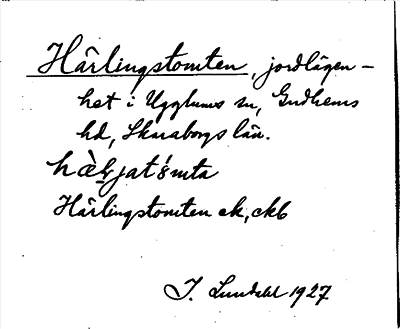 Härlingstomten, jordlägen-
het i Ugglums sn, Gudhems
hd, Skaraborgs län.
Härlingstomten ek, ekb
I. Lundahl 1927